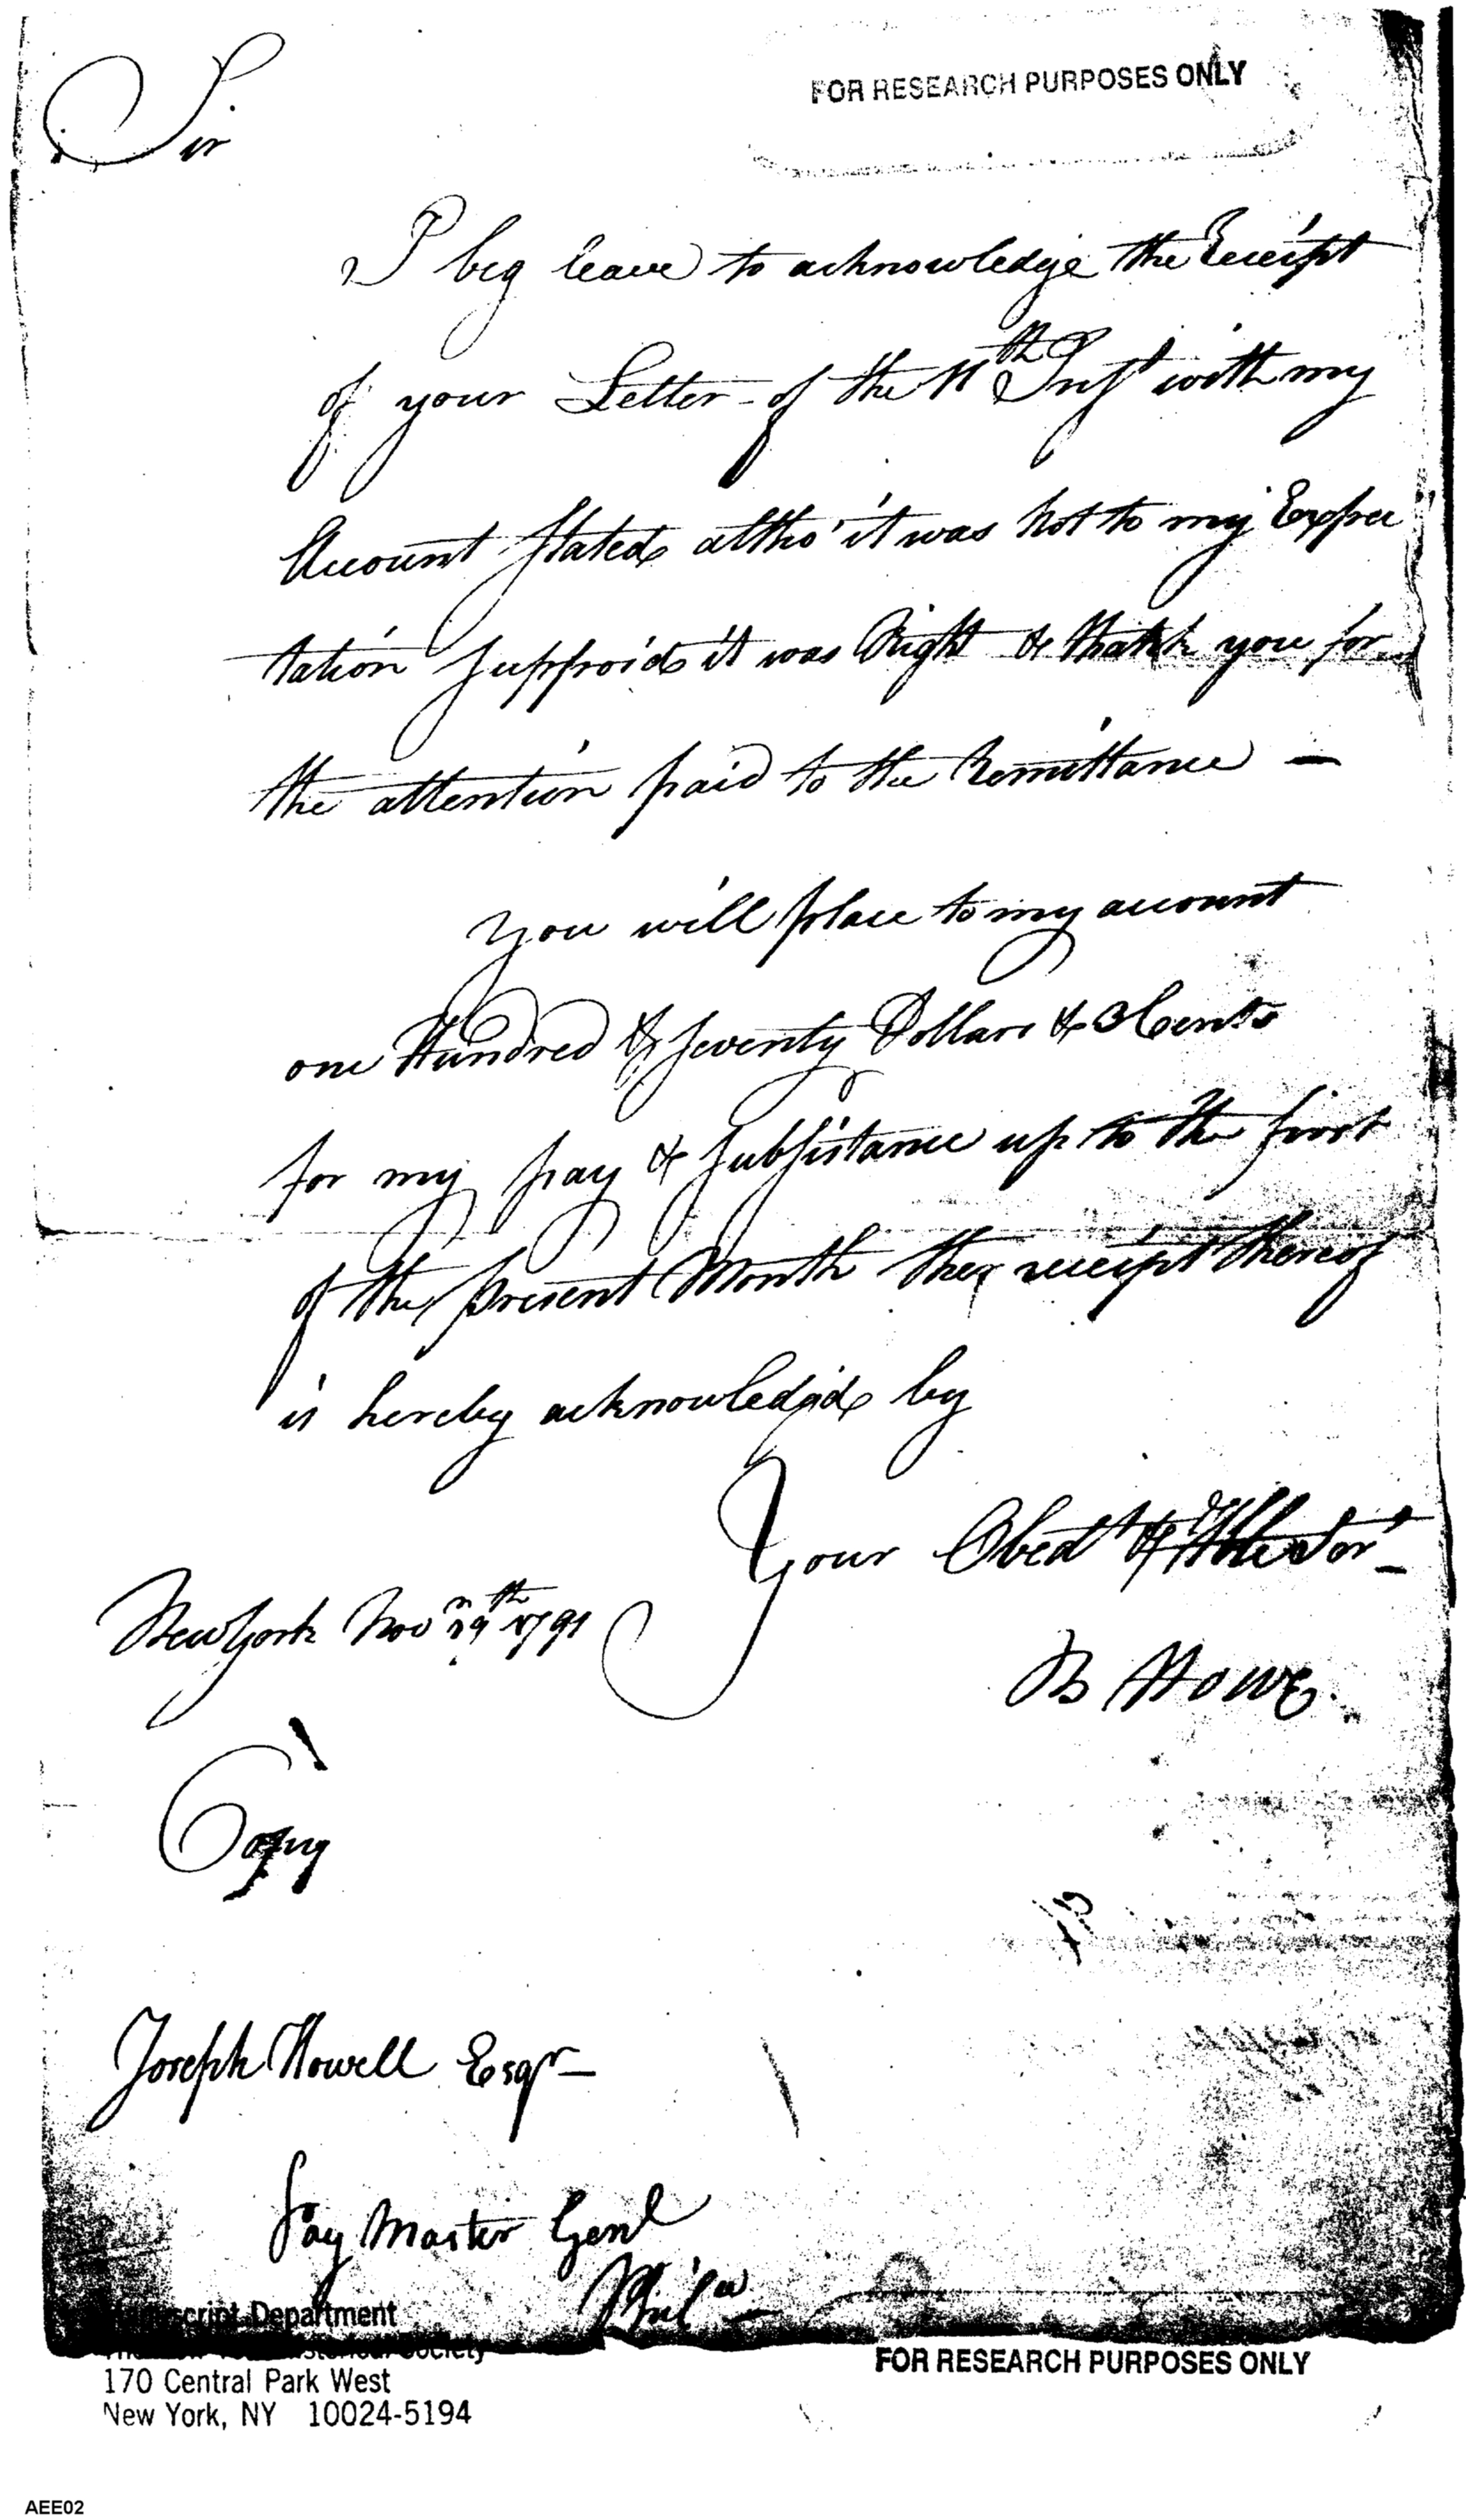 FOR RESEARCH PURPOSES ONLY
Sir
I beg leave to acknowledge the Receipt
of your Letter - of the 11th Inst with my
Account Stated altho' it was not to my Expec
tation suppos'd it was Right & thank you for
the attention paid to the Remittance —
You will place to my account
one Hundred & Seventy Dollars & 3 Cents
for my pay & Subsistance up to the first
of the present Month the receipt thereof
is hereby acknowledg'd by
Your Obedt & Hble Sert
New York Novr 29th 1791
B Howe
Copy
Joseph Howell Esqr —
Pay Master Genl
Phila —
Manuscript Department
Society
170 Central Park West
New York, NY 10024-5194
FOR RESEARCH PURPOSES ONLY
AEE02